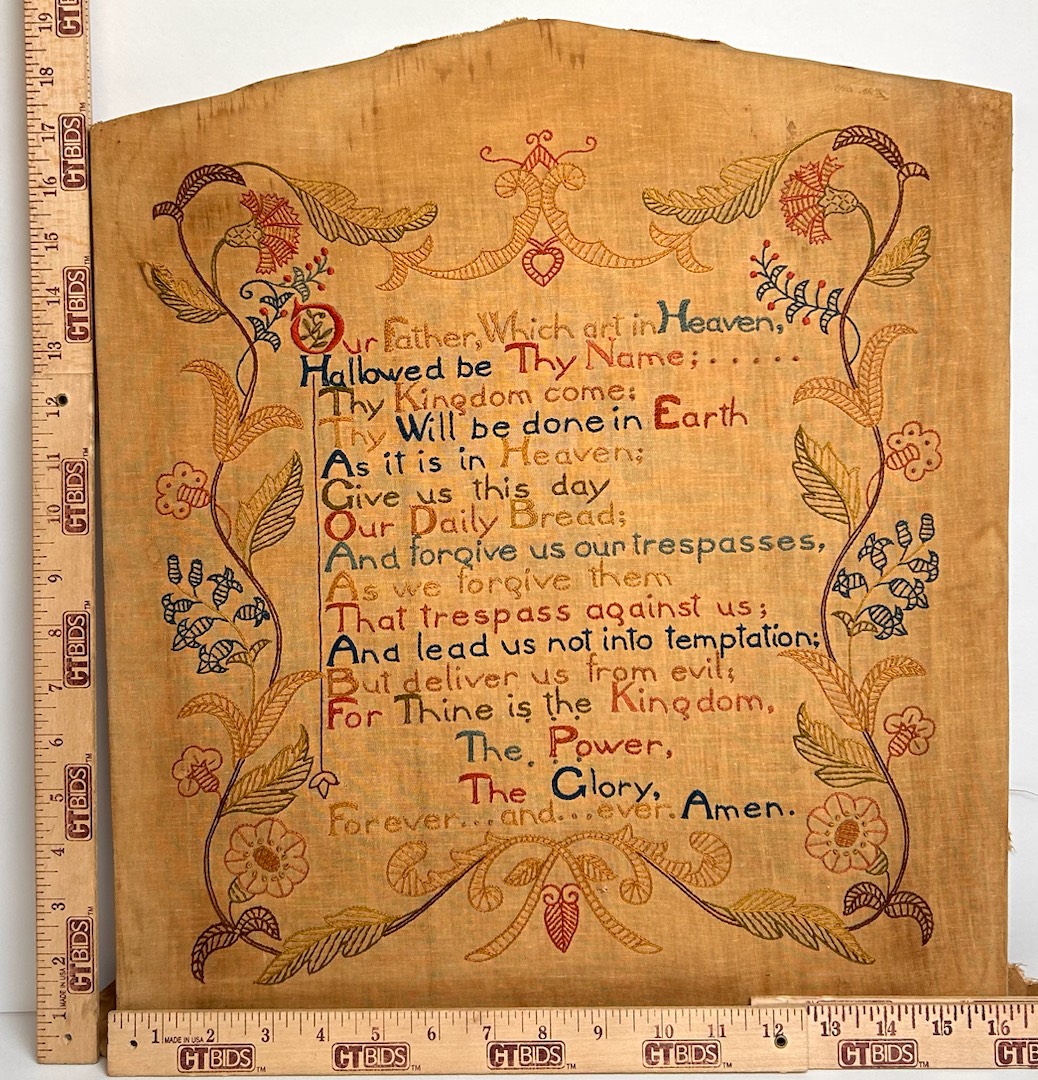 Our Father, Which art in Heaven,
Hallowed be Thy Name; . . . . .
Thy Kingdom come:
Thy Will be done in Earth
As it is in Heaven;
Give us this day
Our Daily Bread;
And forgive us our trespasses,
As we forgive them
That trespass against us;
And lead us not into temptation;
But deliver us from evil;
For Thine is the Kingdom,
The Power,
The Glory,
Forever...and...ever. Amen.
19
CTBIDS™
18
17
CTBIDS™
16
15
CTBIDS™
14
13
12
CTBIDS™
11
10
CTBIDS™
9
8
CTBIDS™
7
6
CTBIDS™
5
4
3
CTBIDS™
2
MADE IN USA
1
1 MADE IN USA 2 3 4 5 6 7 8 9 10 11 12 13 14 15 16
CTBIDS™ CTBIDS™ CTBIDS™ CTBIDS™ CTBIDS™ CT